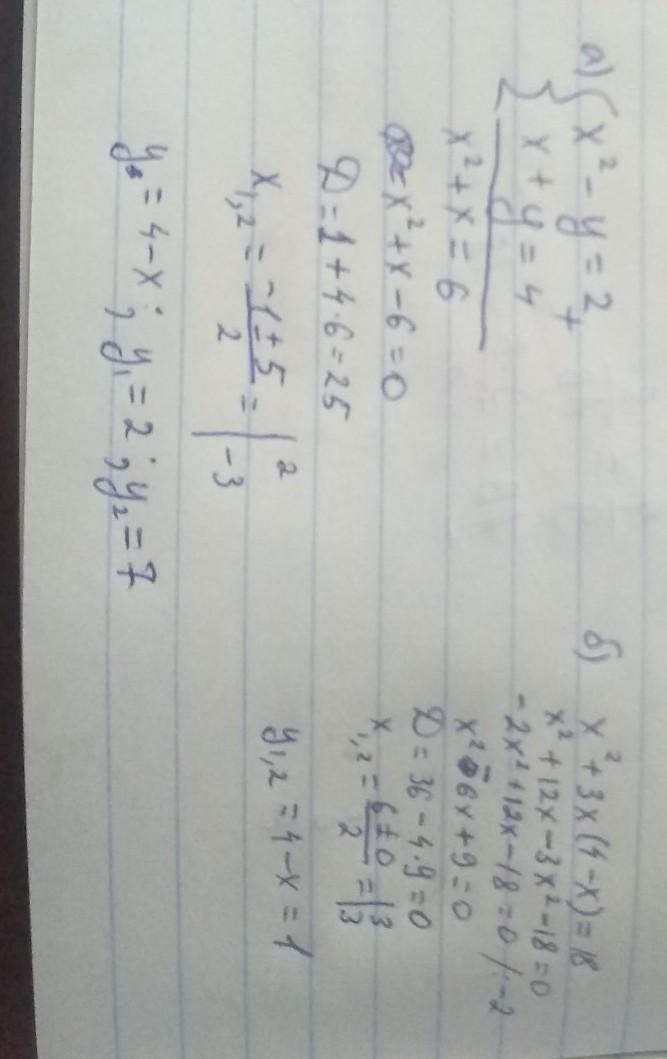 а) { x² - y = 2
{ x + y = 4 +
x² + x = 6
x² + x - 6 = 0
D = 1 + 4·6 = 25
x₁,₂ = (-1 ± 5)/2 = | 2
| -3
y = 4 - x ; y₁ = 2 ; y₂ = 7
б) x² + 3x(4 - x) = 18
x² + 12x - 3x² - 18 = 0
-2x² + 12x - 18 = 0 /: -2
x² - 6x + 9 = 0
D = 36 - 4·9 = 0
x₁,₂ = (6 ± 0)/2 = | 3
| 3
y₁,₂ = 4 - x = 1